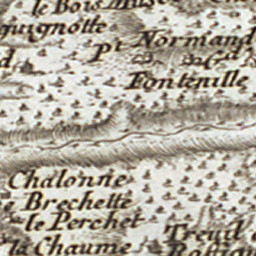 le Bois
quignotte
Pt Normand
Fontenille
Chalonne
Brechette
le Perchet
la Chaume
Treuil